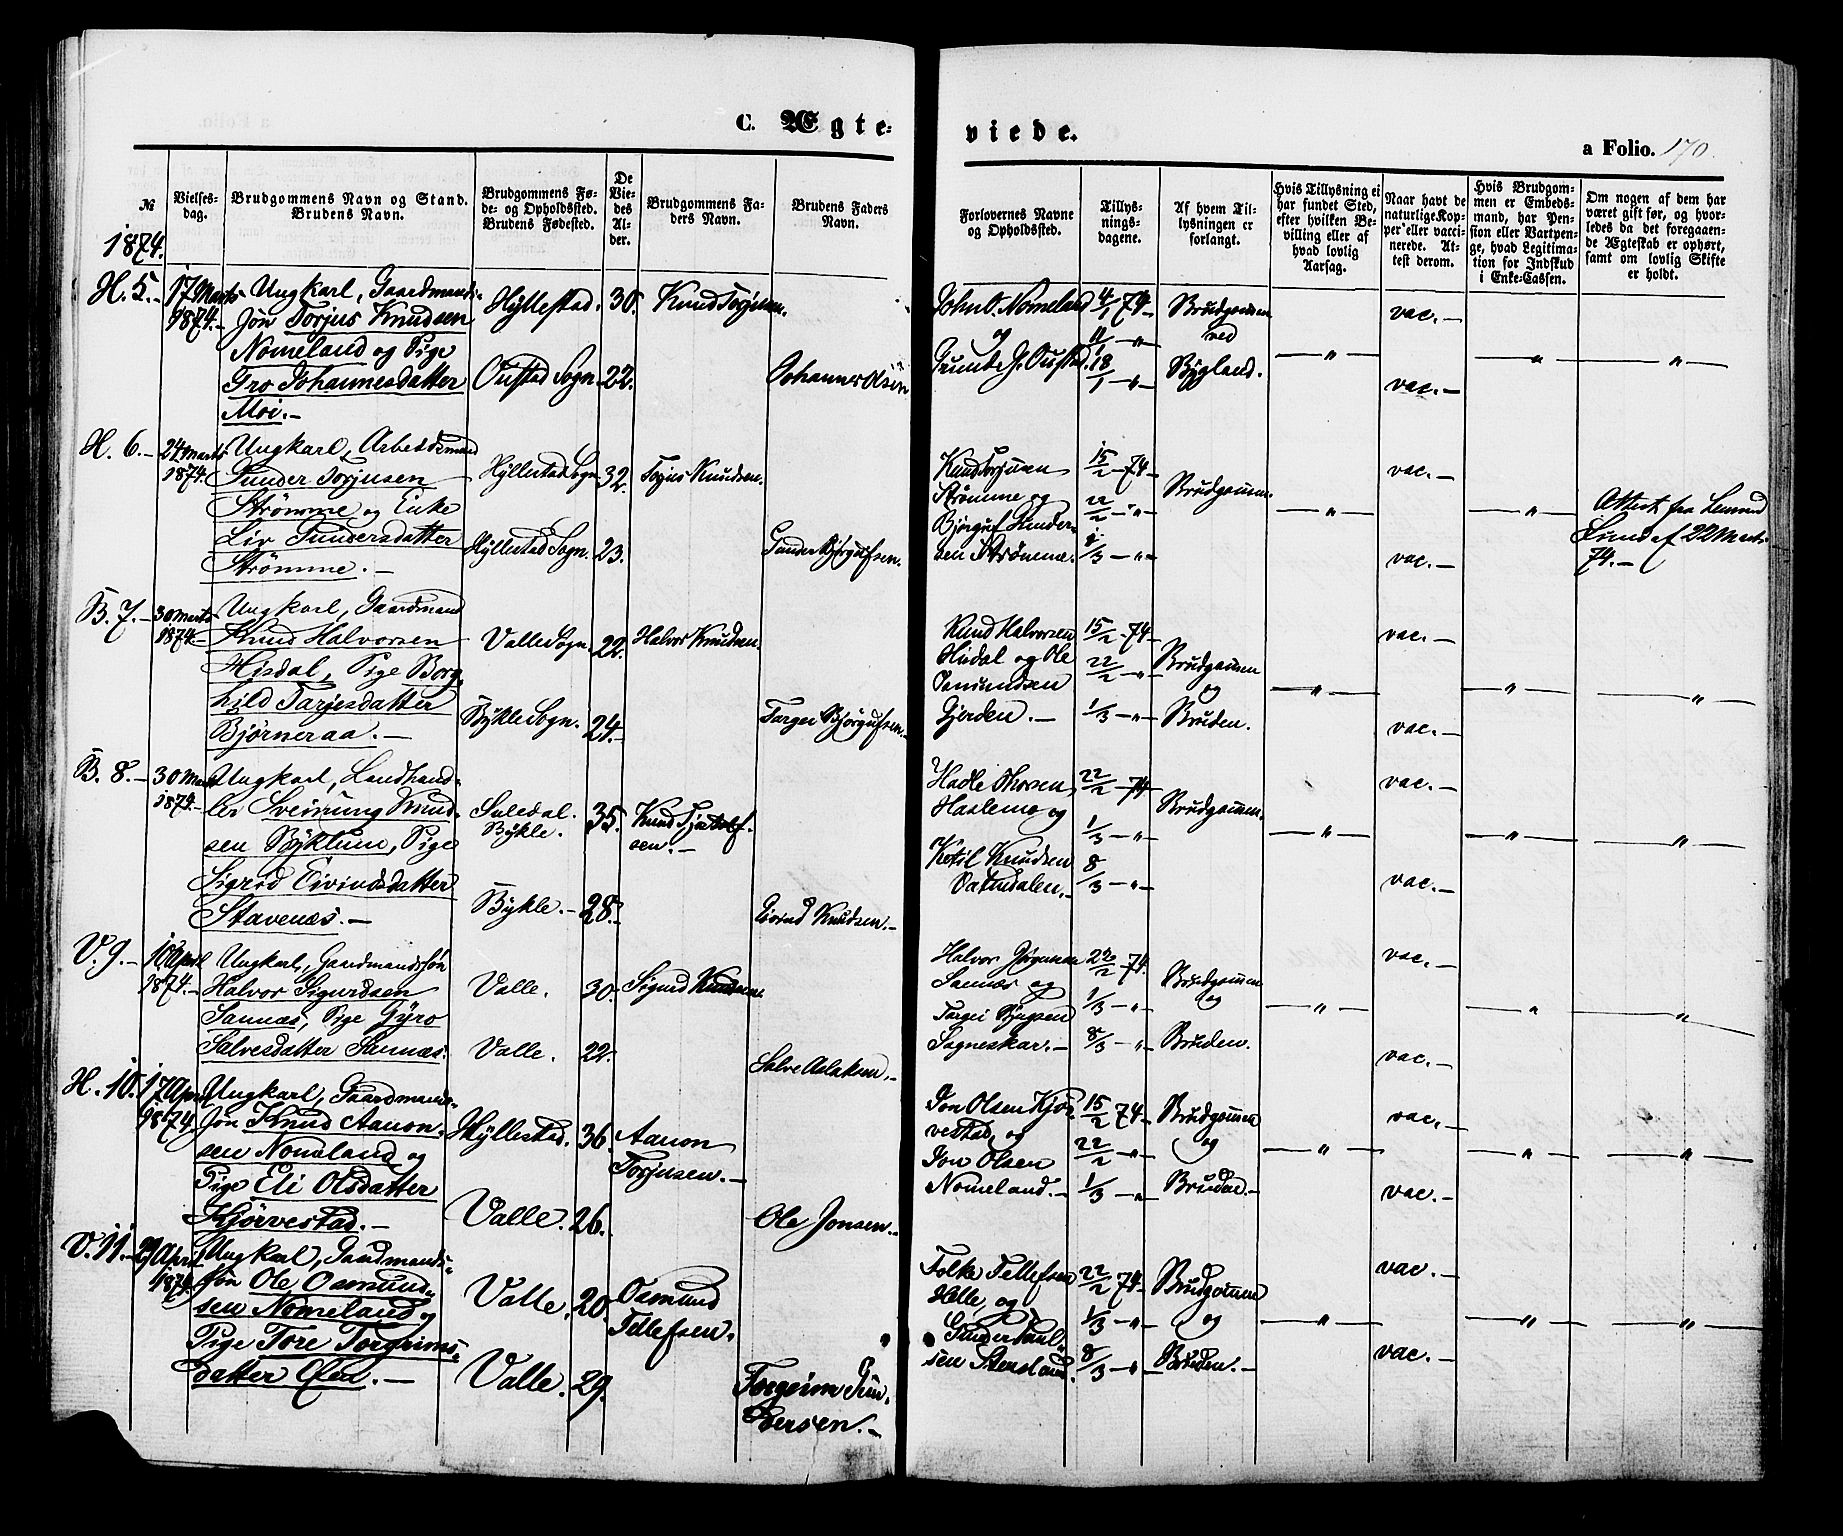 C. Ægte=
viede.
a Folio. 170.
№
Vielses-
dag.
Brudgommens Navn og Stand.
Brudens Navn.
Brudgommens Fø-
de- og Opholdssted.
Brudens Fødested.
De
Vie-
des
Al-
der.
Brudgommens Fa-
ders Navn.
Brudens Faders
Navn.
Forlovernes Navne
og Opholdssted.
Tillys-
nings-
dagene.
Af hvem Til-
lysningen er
forlangt.
Hvis Tillysning ei
har fundet Sted,
efter hvilken Be-
villing eller af
hvad lovlig
Aarsag.
Naar havt de
naturlige Kop-
per eller vacci-
nerede. At-
test derom.
Hvis Brudgom-
men er Embeds-
mand, har Pen-
sion eller Vartpen-
ge, hvad Legitima-
tion for Indskud
i Enke-Cassen.
Om nogen af dem har
været gift før, og hvor-
ledes da det foregaaen-
de Ægteskab er ophørt,
samt om lovlig Skifte
er holdt.
1874.
H. 5.- 17 Marts 1874.-
Ungkarl, Gaardmands-
søn Torjus Knudsen
Nomeland og Pige
Gro Johannesdatter
Moi.-
Hyllestad. 30. Knud Torjusen.
Oustad Sogn. 22. Johannes Olsen
John O. Nomeland
og
Gunde J. Oustad.
4/1 74-
11/1 -"-
18/1 -"-
Brudgommen
ved
Bygland.
vac.-
vac.-
H. 6.- 24 Marts 1874.
Ungkarl, Arbeidsmand
Gunder Torjusen
Strømme og Enke
Liv Gundersdatter
Strømme.-
Hyllestad Sogn 32. Torjus Knudsen.
Hyllestad Sogn. 23. Gunder Bjørgufsen.
Knud Torjusen
Strømme og
Bjørguf Gunder-
sen Strømme.
15/2 -74-
22/2 -"-
1/3 -"-
Brudgommen.
vac.-
vac.-
Attest fra Lensmd
Lund af 22 Marts
74.-
B. 7.- 30 Marts 1874.-
Ungkarl, Gaardmand
Knud Halvorsen
Hisdal, Pige Borg-
hild Tarjesdatter
Bjørneraa.-
Valle Sogn. 22. Halvor Knudsen.
Bykle Sogn. 24.- Targei Bjørgufsen.-
Knud Halvorsen
Hisdal og Ole
Osmundsen
Gjerden.-
15/2 -74-
22/2 -"-
1/3 -"-
Brudgommen
og
Bruden.
vac.-
vac.-
B. 8.- 30 Marts 1874.-
Ungkarl, Landhand-
ler Sveinung Knud-
sen Byklum, Pige
Sigrid Eivindsdatter
Stavenæs.-
Suledal.
Bykle. 35.
Bykle.- 28.- Eivind Knudsen.-
Haslemo og
Ketil Knudsen
Vatndalen.-
22/2 -74-
1/3 -"-
8/3 -"-
Brudgommen.
vac.-
vac.-
V. 9.- 10 April 1874.-
Ungkarl, Gaardmandssøn
Halvor Sigurdsen
Sannæs, Pige Gyro
Salvesdatter Sannæs.
Valle. 30. Sigurd Knudsen.
Valle. 22. Salve Aslaksen.-
Sannæs og
22/2 74.
1/3 -"-
8/3 -"-
Brudgommen
og
Bruden.
vac.-
vac.-
H. 10. 17 April 1874.
Ungkarl, Gaardmands-
søn Knud Aanon-
sen Nomeland og
Pige Eli Olsdatter
Kjørvestad.-
Hyllestad. 36. Aanon
Torjusen.-
Valle. 26. Ole Jonsen.-
Jon Olsen Kjør-
vestad og
Jon Olsen
Nomeland.-
15/2 74-
22/2 -"-
1/3 -"-
Brudgommen
og
Bruden.-
vac.-
vac.-
V. 11.- 29 April 1874.
Ungkarl, Gaardmands-
søn Ole Osmund-
sen Nomeland og
Pige Tore Torgrims-
datter
Valle. 20. Osmund
Tellefsen.
Valle. 29. Torgrim Gun-
dersen.-
Folke Tellefsen
Helle, og
Gunder Paul-
sen Stensland.
22/2 74-
1/3 -"-
8/3 -"-
Brudgommen
og
Bruden.-
vac.-
vac.-